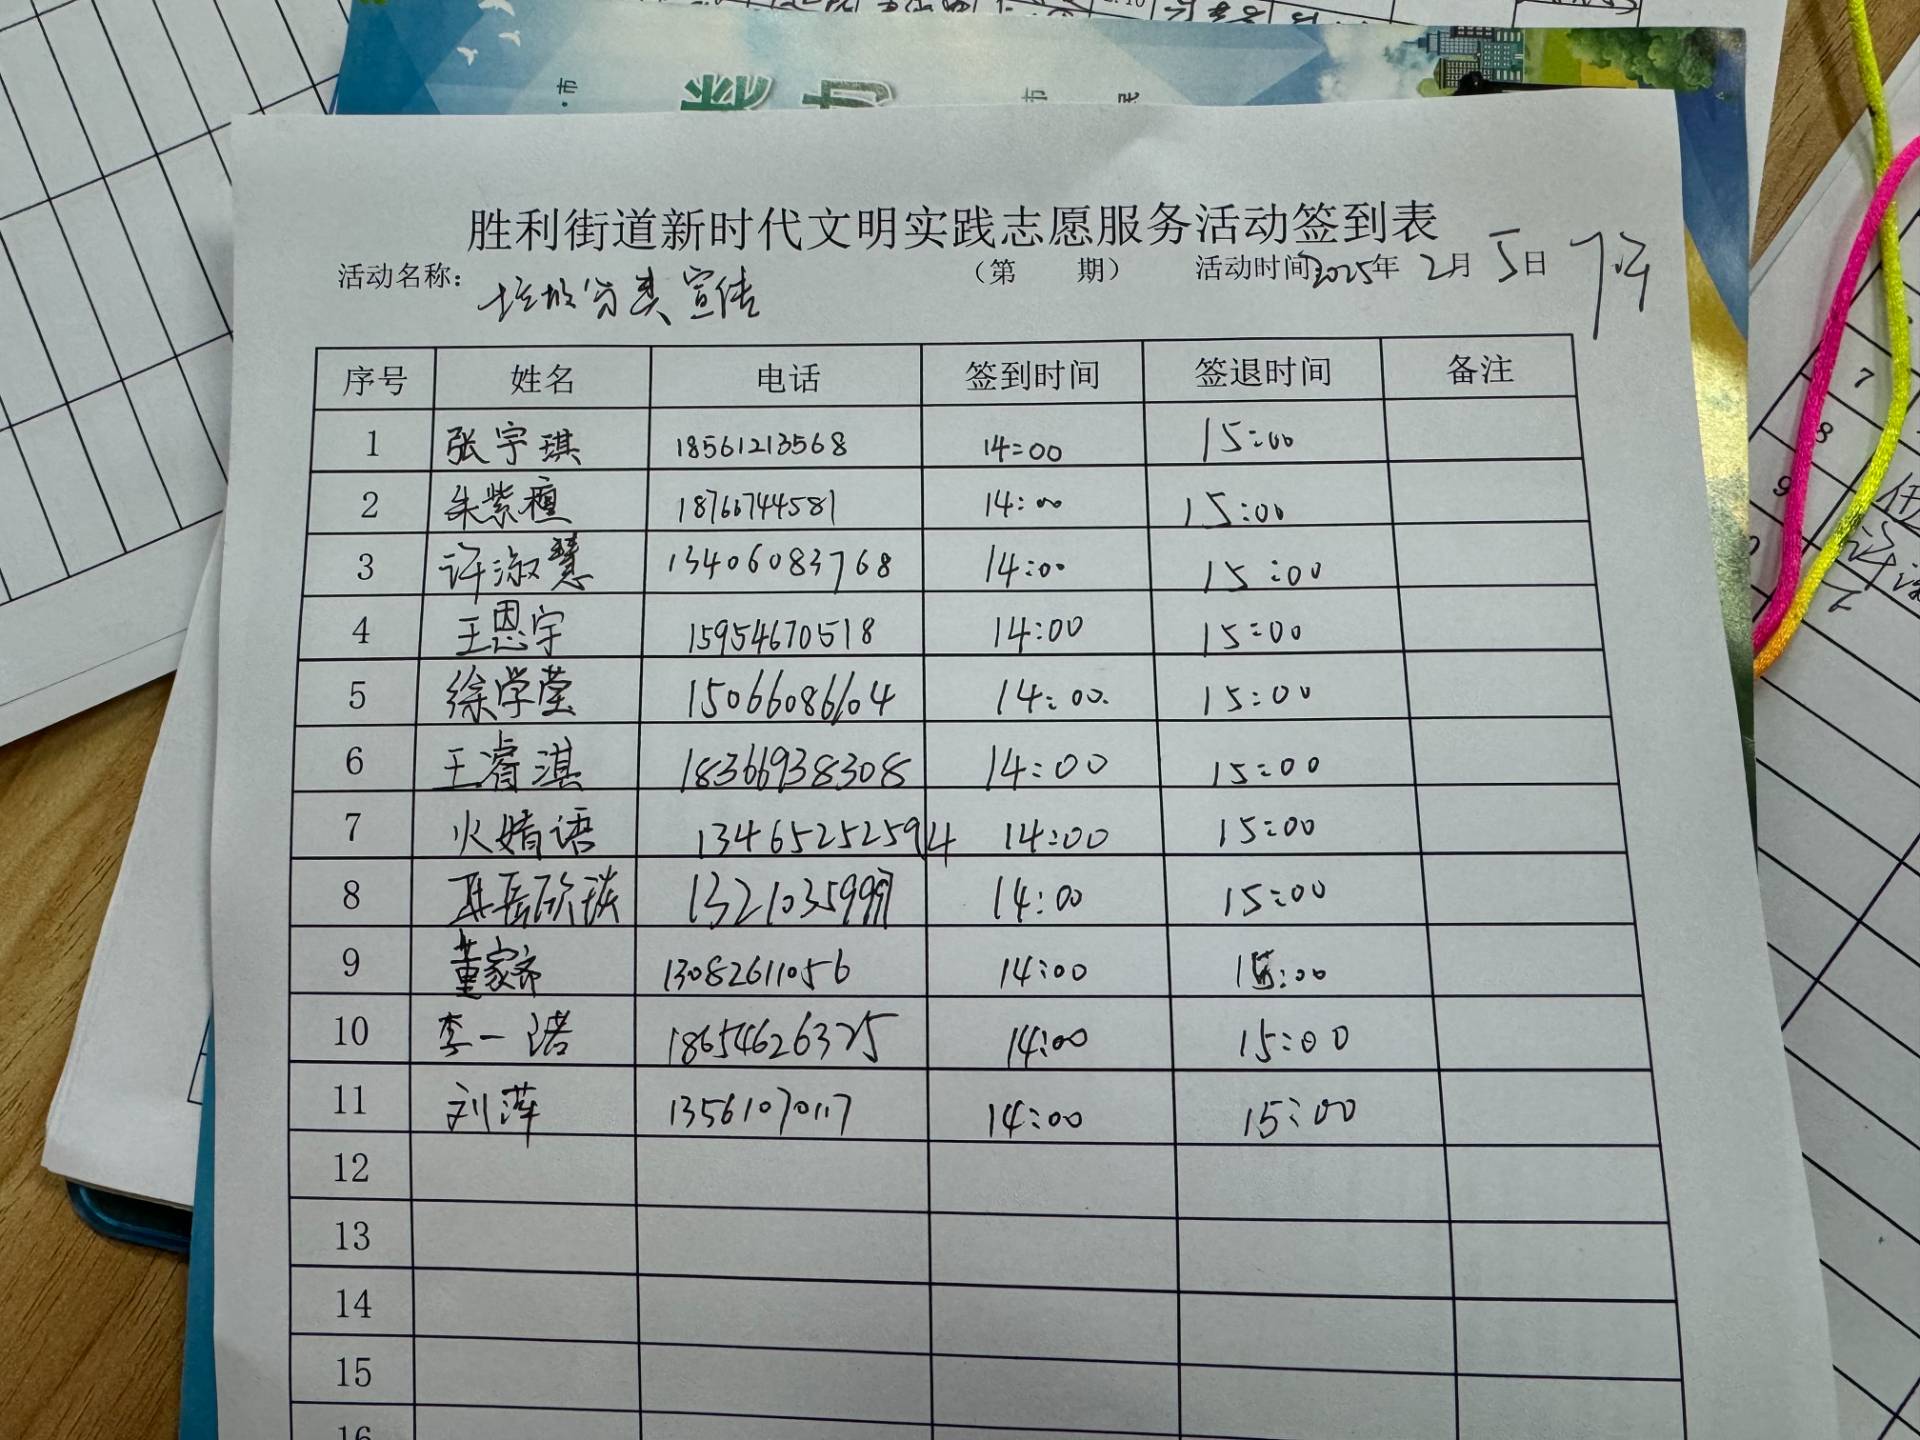 胜利街道新时代文明实践志愿服务活动签到表
活动名称: 垃圾分类宣传 (第 期) 活动时间 2025年 2月 5日 下午
序号 姓名 电话 签到时间 签退时间 备注
1 张宇琪 18561213568 14:00 15:00
2 朱紫檀 18766744581 14:00 15:00
3 许淑慧 13406083768 14:00 15:00
4 王恩宇 15954670518 14:00 15:00
5 徐学莹 15066086604 14:00 15:00
6 王睿淇 18366938308 14:00 15:00
7 火婧语 13465252594 14:00 15:00
8 14:00 15:00
9 董家齐 13082611056 14:00 15:00
10 李一诺 18654626325 14:00 15:00
11 刘萍 13561070117 14:00 15:00
12
13
14
15
16
7
8
9